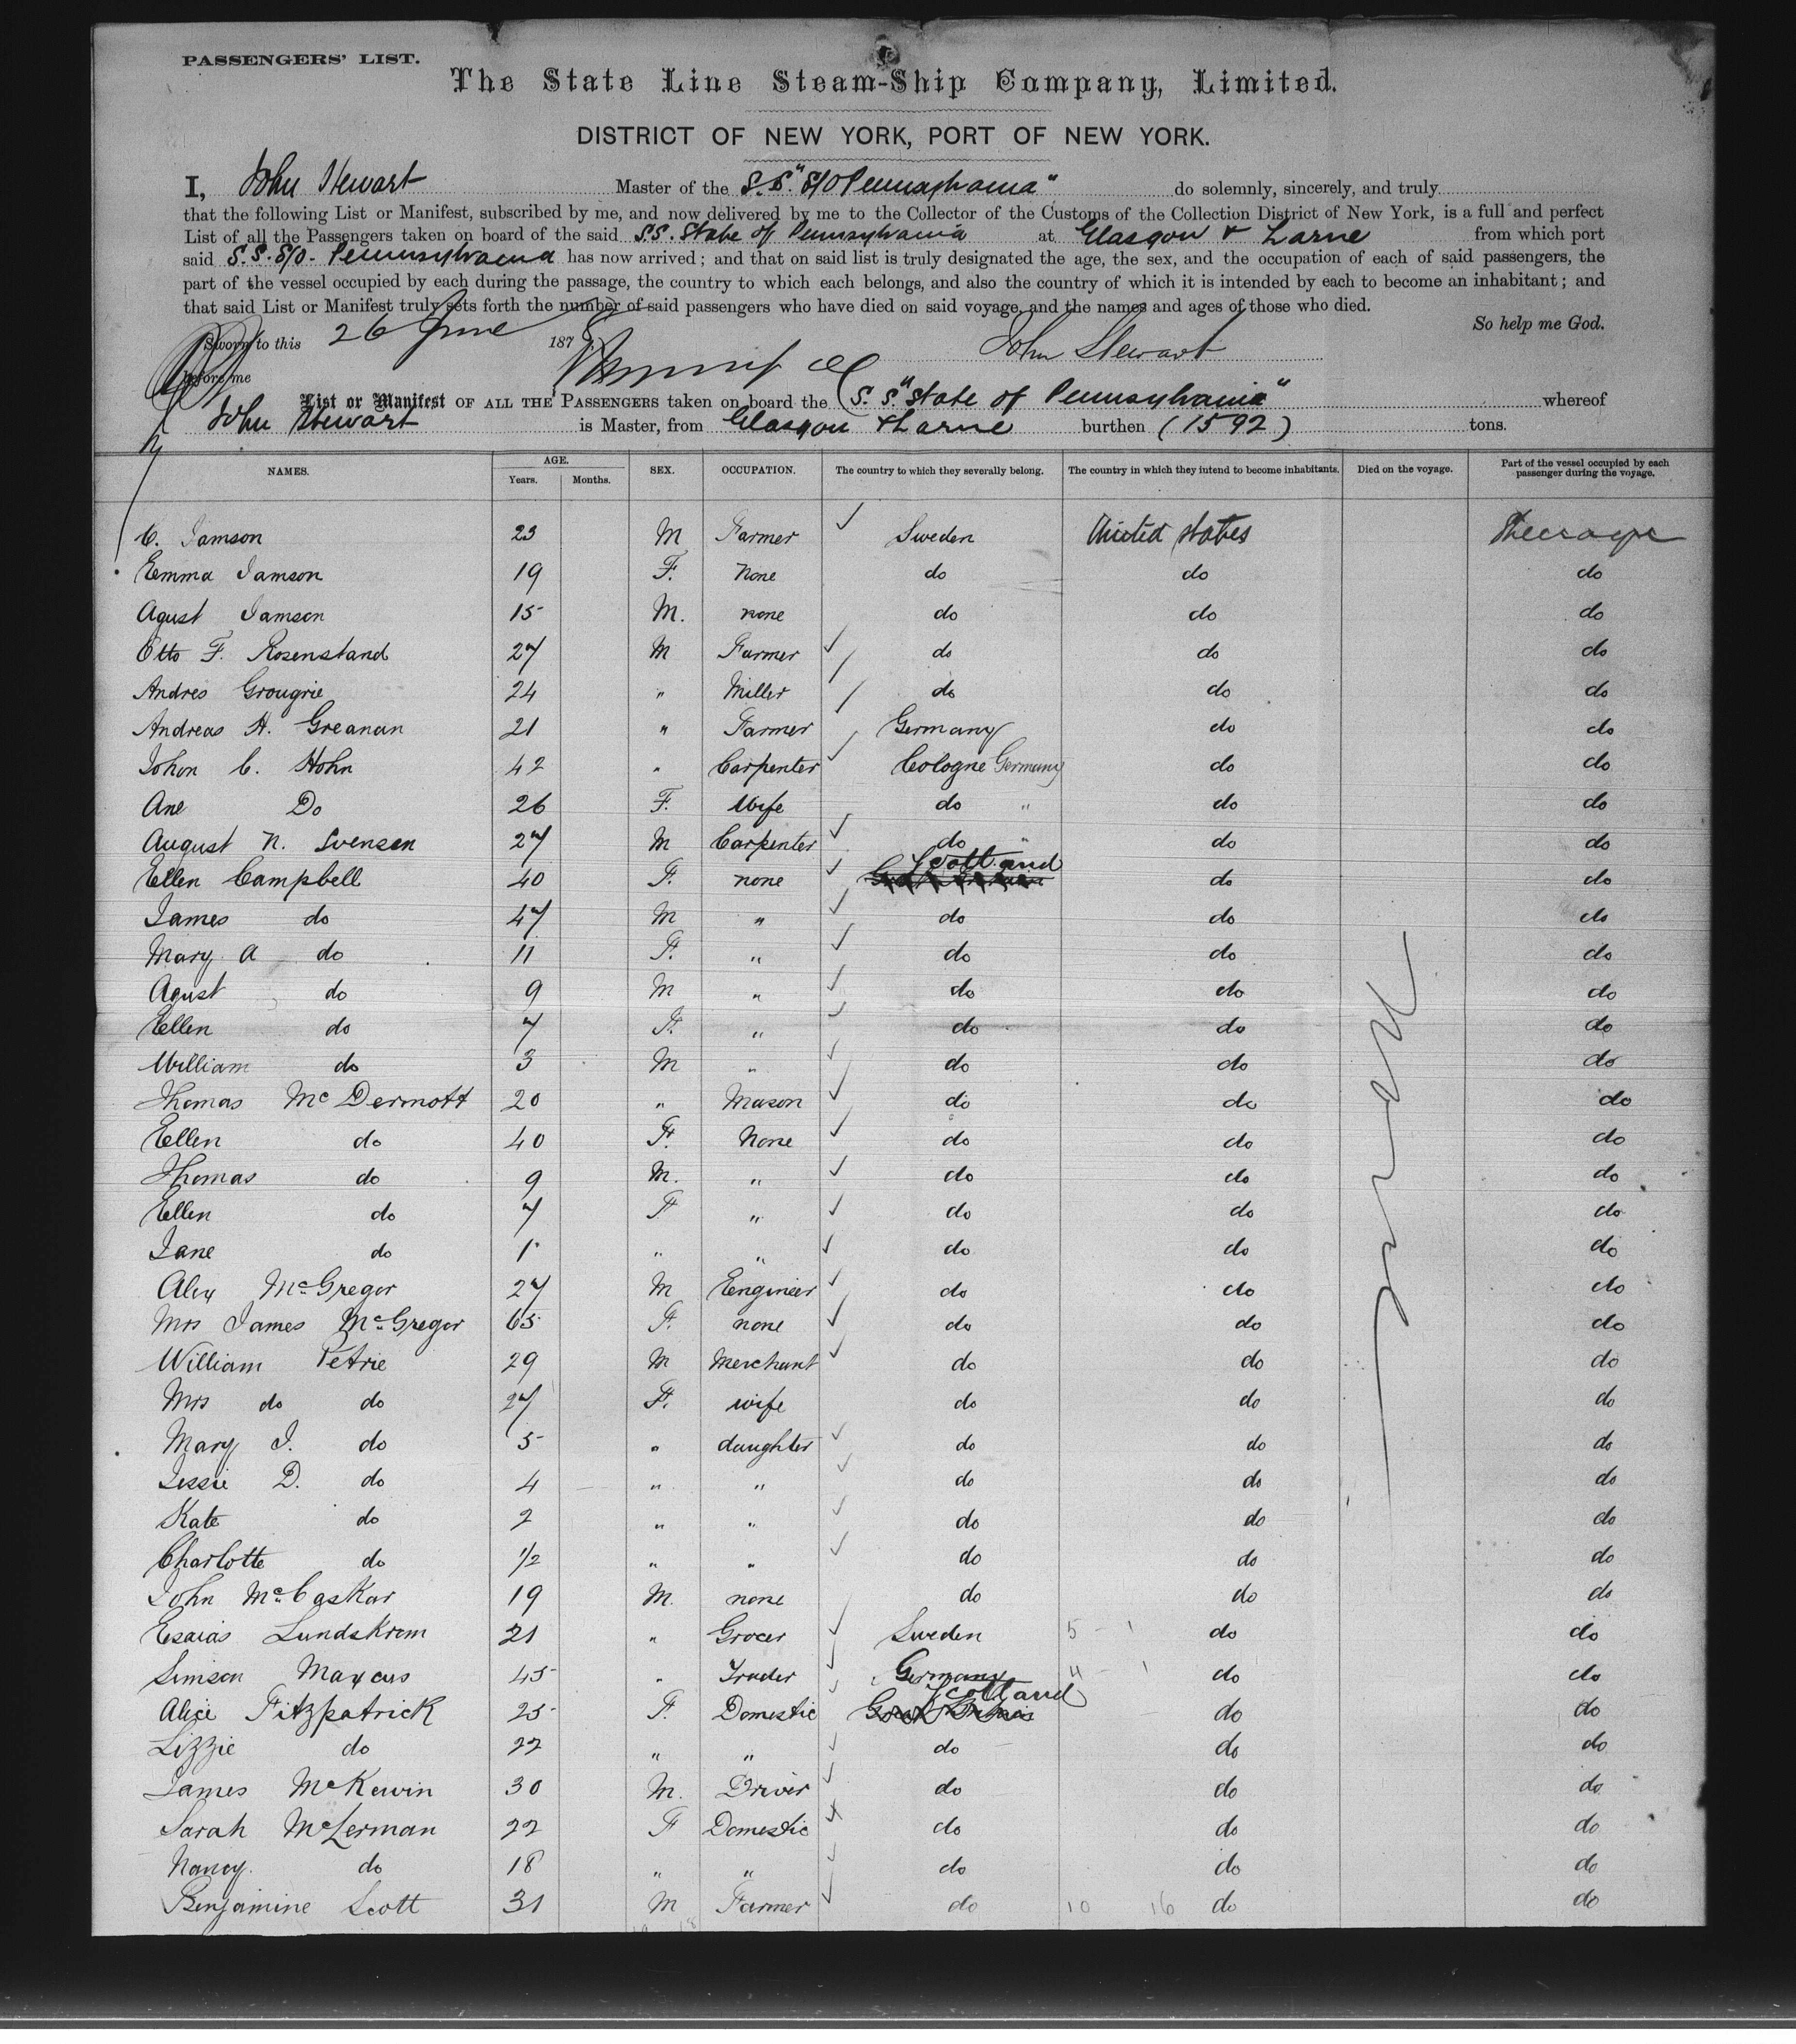 PASSENGERS' LIST.
The State Line Steam-Ship Company, Limited.
DISTRICT OF NEW YORK, PORT OF NEW YORK.
I, John Stewart Master of the S.S. "S/O Pennsylvania" do solemnly, sincerely, and truly
that the following List or Manifest, subscribed by me, and now delivered by me to the Collector of the Customs of the Collection District of New York, is a full and perfect
List of all the Passengers taken on board of the said S.S. State of Pennsylvania at Glasgow & Larne from which port
said S.S. S/O. Pennsylvania has now arrived; and that on said list is truly designated the age, the sex, and the occupation of each of said passengers, the
part of the vessel occupied by each during the passage, the country to which each belongs, and also the country of which it is intended by each to become an inhabitant; and
that said List or Manifest truly sets forth the number of said passengers who have died on said voyage, and the names and ages of those who died.
So help me God.
Sworn to this 26 June 187
John Stewart
before me
List or Manifest OF ALL THE PASSENGERS taken on board the S.S. "State of Pennsylvania" whereof
John Stewart is Master, from Glasgow & Larne burthen (1592) tons.
NAMES. AGE. Years. Months. SEX. OCCUPATION. The country to which they severally belong. The country in which they intend to become inhabitants. Died on the voyage. Part of the vessel occupied by each passenger during the voyage.
C. Jamson 23 M Farmer Sweden United States Steerage
Emma Jamson 19 F. None do do do
Agust Jamson 15 M. none do do do
Otto F. Rosenstand 27 M Farmer do do do
Andres Grougrie 24 " Miller do do do
Andreas H. Greanan 21 " Farmer Germany do do
Johon C. Hohn 42 " Carpenter Cologne Germany do do
Ane Do 26 F. Wife do " do do
August N. Svensen 27 M Carpenter do " do do
Ellen Campbell 40 F. none Scotland do do
James do 47 M " do do do
Mary A do 11 F. " do do do
Agust do 9 M " do do do
Ellen do 7 F. " do do do
William do 3 M " do do do
Thomas McDermott 20 " Mason do do do
Ellen do 40 F. None do do do
Thomas do 9 M. " do do do
Ellen do 7 F " do do do
Jane do 1 " " do do do
Alex McGregor 27 M Engineer do do do
Mrs James McGregor 65 F. none do do do
William Petrie 29 M Merchant do do do
Mrs do do 27 F. wife do do do
Mary J. do 5 " daughter do do do
Jessie D. do 4 " " do do do
Kate do 2 " " do do do
Charlotte do 1/2 " " do do do
John McCaskar 19 M. none do do do
Esaias Lundskrom 21 " Grocer Sweden 5 - 1 do do
Simson Marcus 45 " Trader Germany 4 - 1 do do
Alice Fitzpatrick 25 F. Domestic Great Britain Scotland do do
Lizzie do 22 " " do do do
James McKewin 30 M. Driver do do do
Sarah McLerman 22 F Domestic do do do
Nancy do 18 " " do do do
Benjamine Scott 31 M Farmer do 10 16 do do